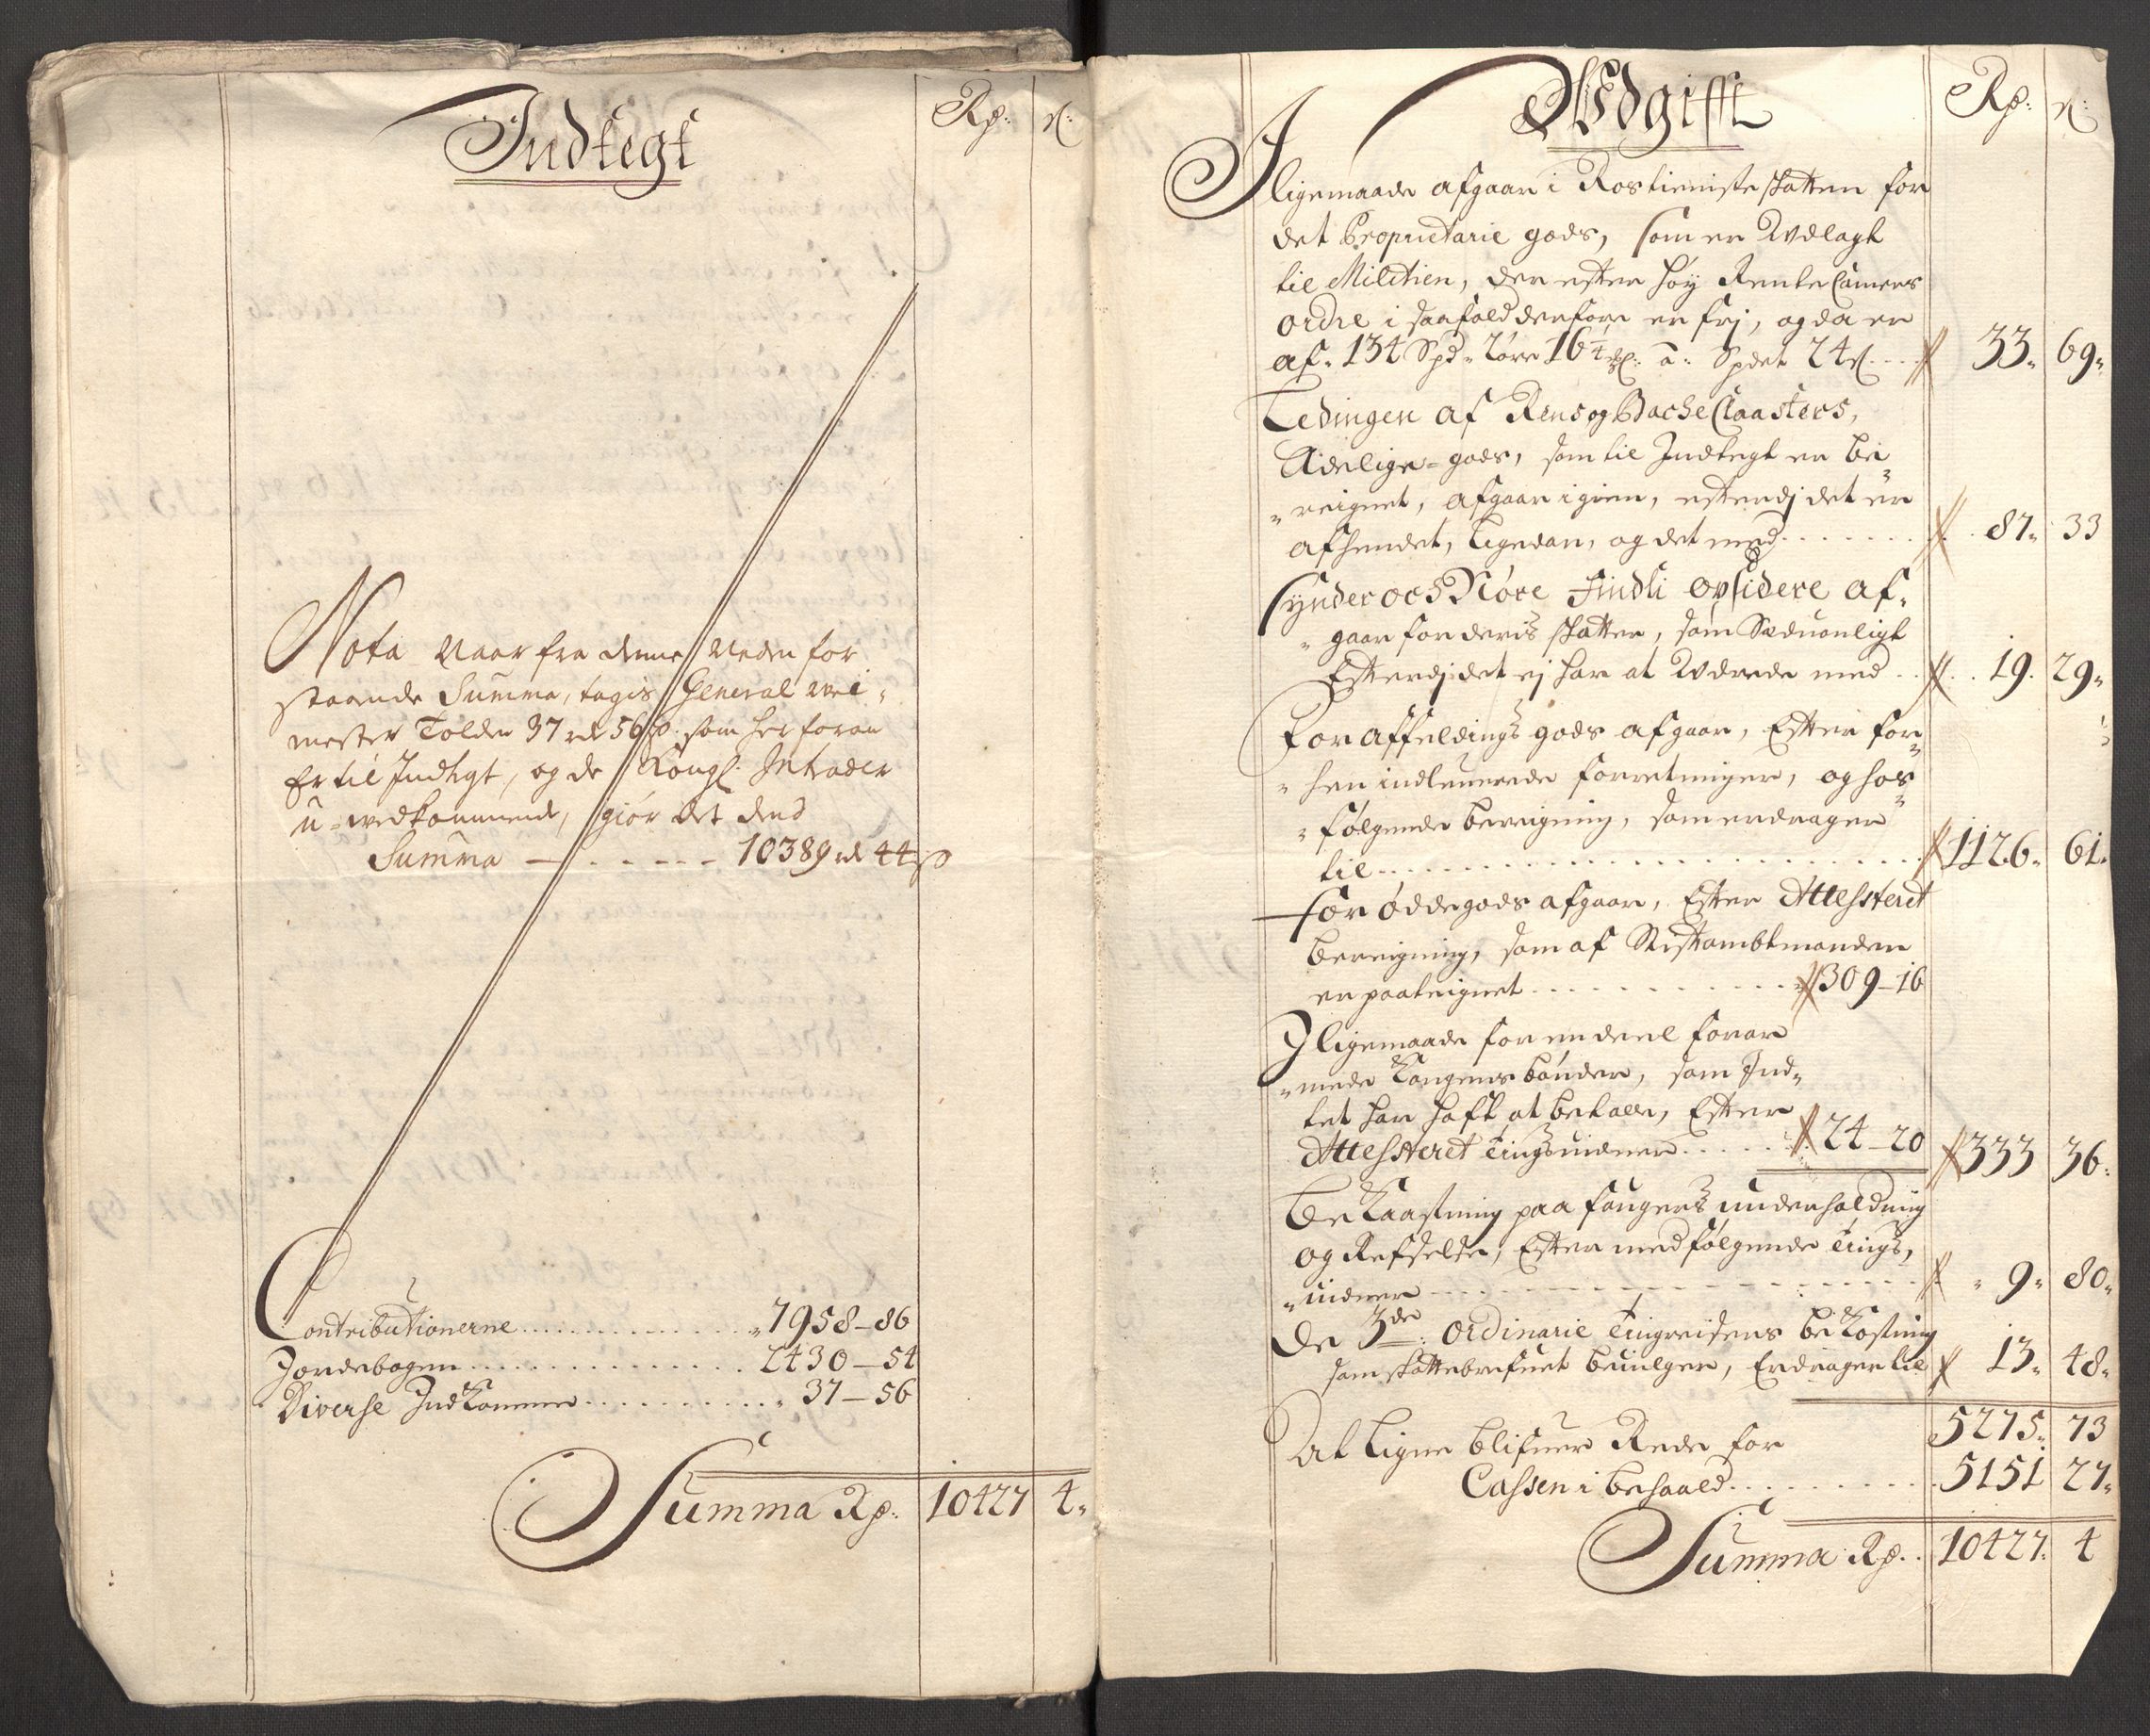 Indtegt
Rp: ſ:
Nota Naar fra denne neden for
staaende Summa, tagis General vei-
mester Tolden 37 rd 56 ß: som her foran
Er til Indtegt, og de Kongl. Intrader
u-wedkommende, giør det dend
Summa 10389 rd 44 ß
Contributionerne 7958-86
Jordebogen 2430-54
Diverse Indkomme 37-56
Summa Rp: 10427 4
Udgifft
Rp: ſ:
J ligemaade afgaar i Rostieniste skatten for
det Proprietarie gods, som er Udlagt
til Militien, der efter høy Rente Camers
ordre i saafald derfore er frj, og da er
af 134 Spd 16 a Spdet 24 ſ 33 69
Ledingen af Rens og Bache Claasters,
Adelige-gods, som til Indtegt er be-
reignet, afgaar igien, efterdj det er
afhendet, ligedan, og det med 87 33
Synder og Nøre Findli opsidere af-
gaar for deris skatter, som Sæduanligt
Efterdj det ej har at Udrede med 19 29
For affeldings gods afgaar, Efter for-
hen indleuerede forretninger, og hos-
følgende beregning, som erdrager
til 1126 61
for ødegods afgaar, Efter Attesteret
beregning, som af Stiftambtmanden
er paateignet 309-16
J ligemaade for en deel forar-
mede Kongens bønder, som Ind-
tet har haft at betale, Efter
Attesteret Tingsvidner 24-20 333 36
Bekaastning paa fangers underholdning
og Refselse, Efter medfølgende Tings-
vidner 9 80
De 3de: ordinarie Tingreisers bekostning
som skattebrefuet beuilger, Erdrager til 13 48
5275 73
At Ligne blifuer Rede for
Cassen i behaald 5151 27
Summa Rp: 10427 4